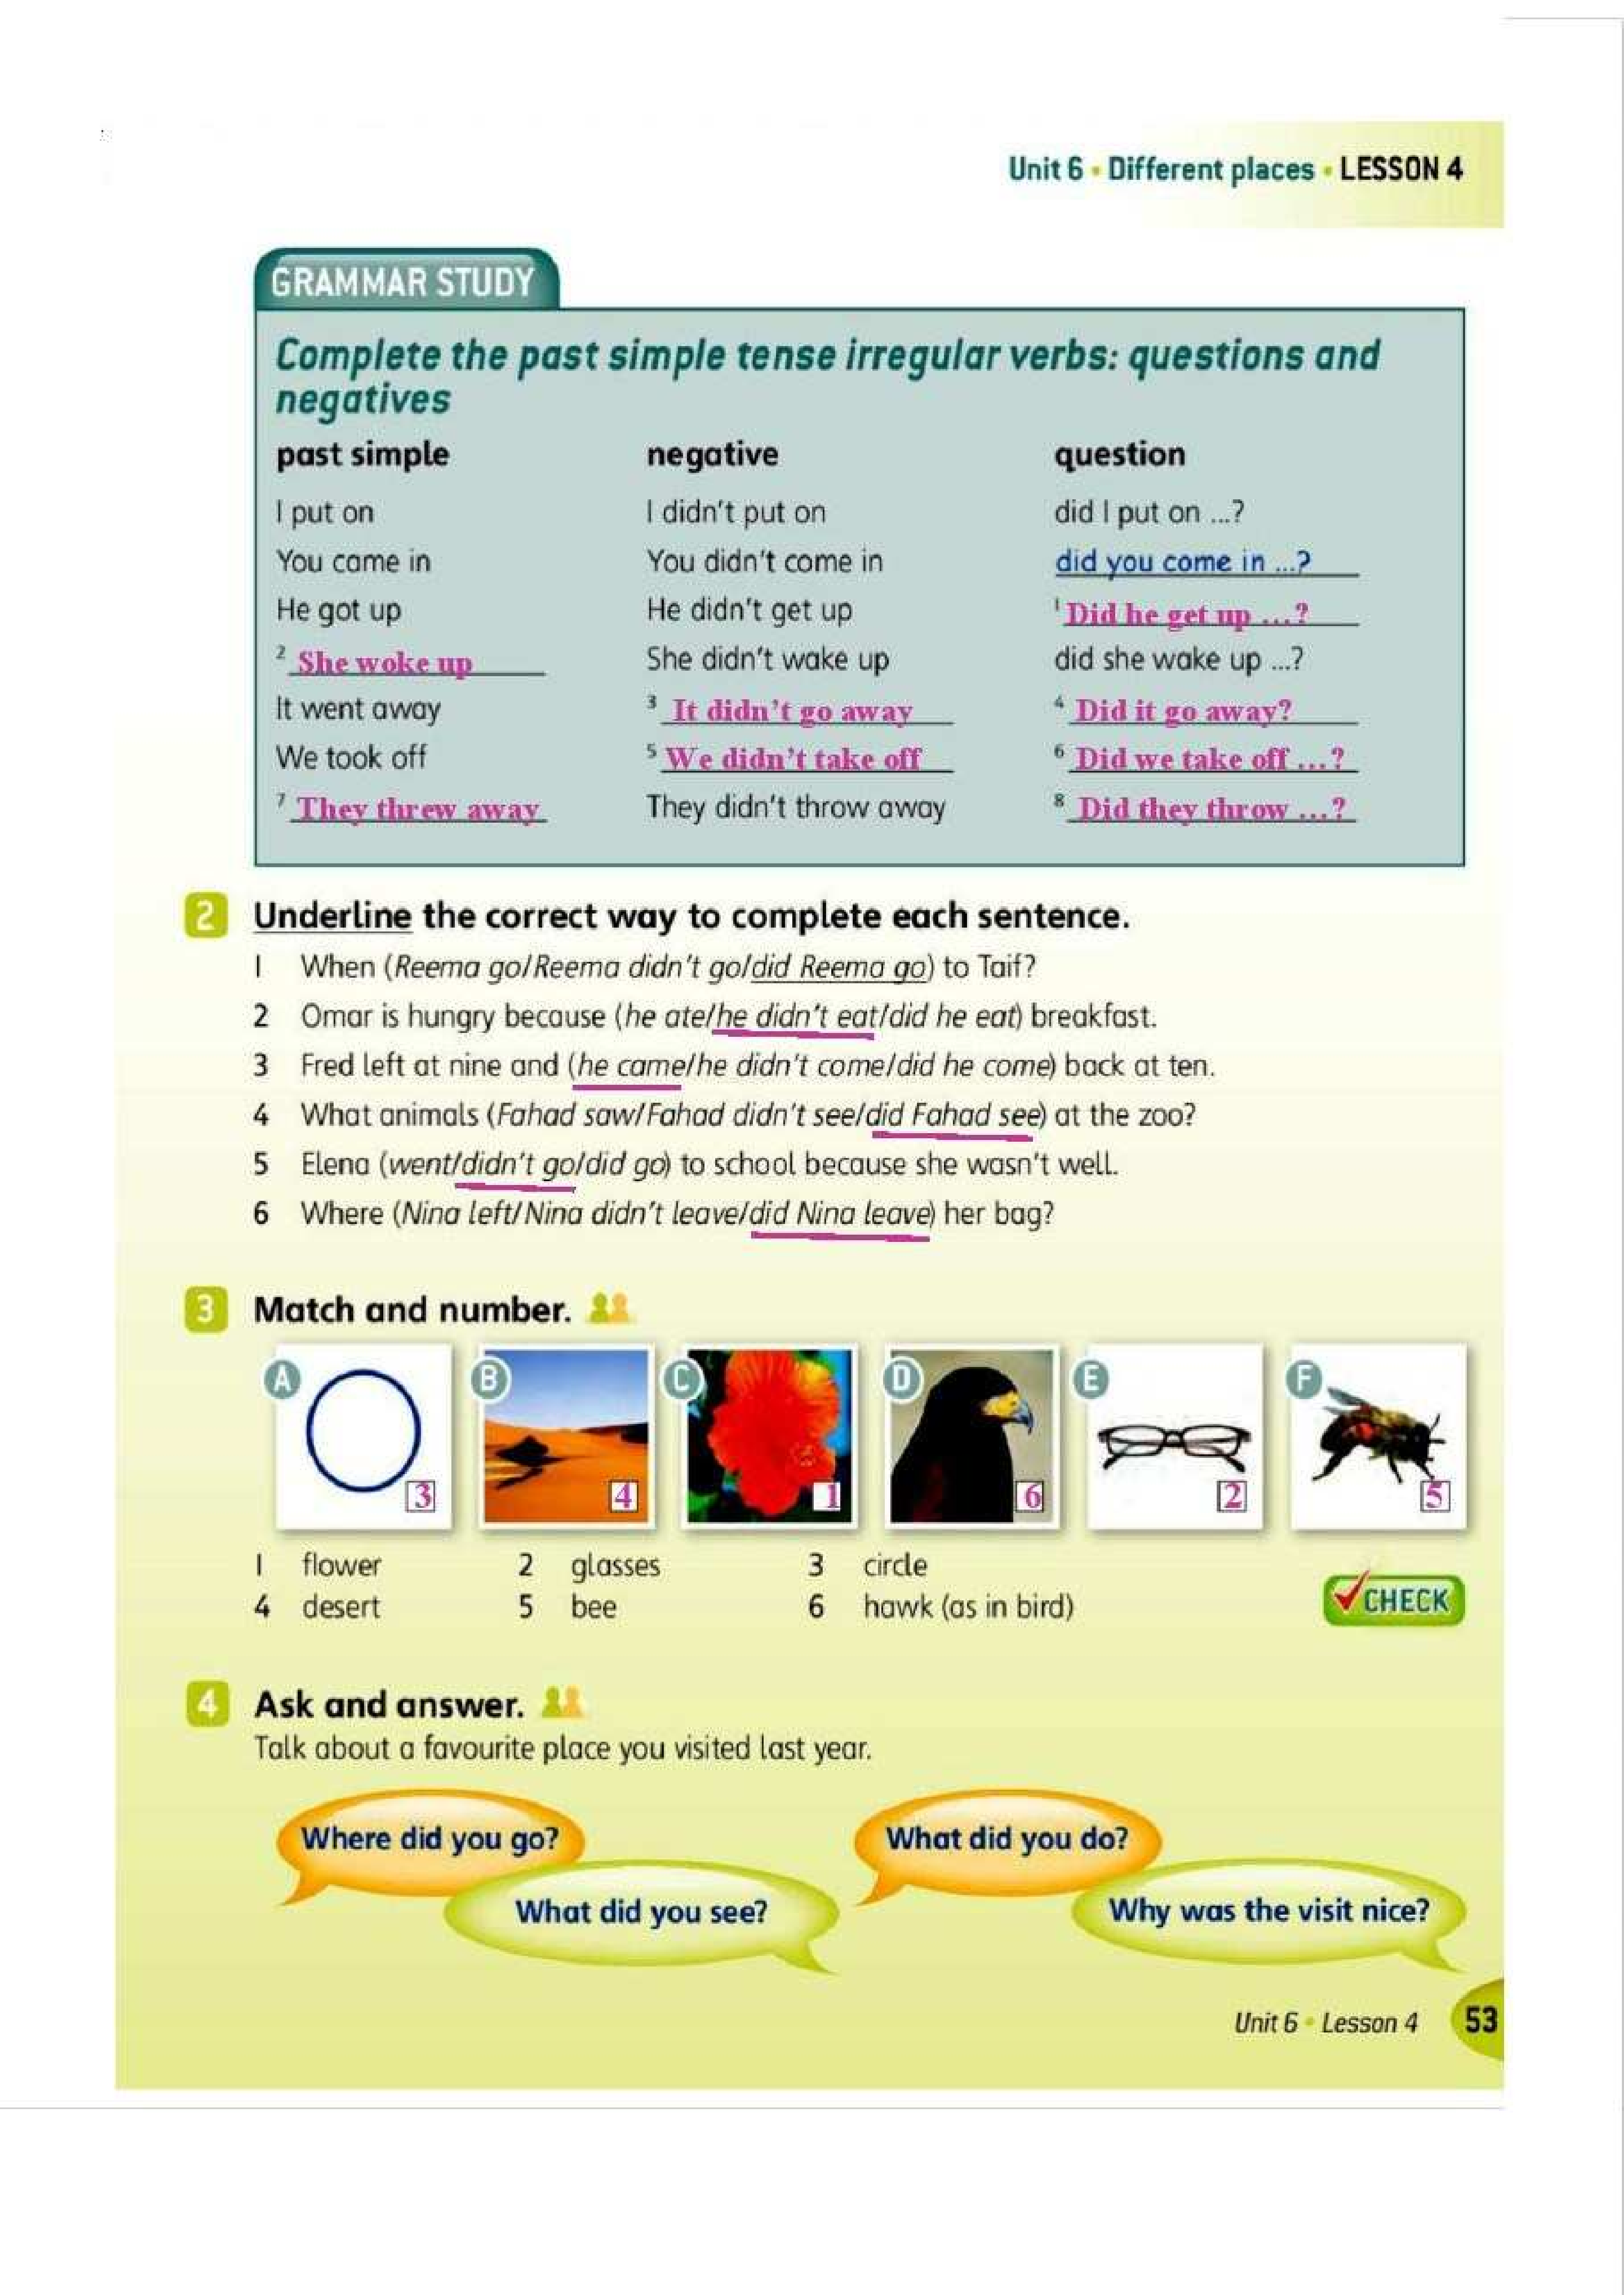 Unit 6 • Different places • LESSON 4
GRAMMAR STUDY
Complete the past simple tense irregular verbs: questions and
negatives
past simple negative question
I put on I didn't put on did I put on ...?
You came in You didn't come in did you come in ...?
He got up He didn't get up 1 Did he get up ...?
2 She woke up She didn't wake up did she wake up ...?
It went away 3 It didn't go away 4 Did it go away?
We took off 5 We didn't take off 6 Did we take off ...?
7 They threw away They didn't throw away 8 Did they throw ...?
2 Underline the correct way to complete each sentence.
1 When (Reema go/Reema didn't go/did Reema go) to Taif?
2 Omar is hungry because (he ate/he didn't eat/did he eat) breakfast.
3 Fred left at nine and (he came/he didn't come/did he come) back at ten.
4 What animals (Fahad saw/Fahad didn't see/did Fahad see) at the zoo?
5 Elena (went/didn't go/did go) to school because she wasn't well.
6 Where (Nina left/Nina didn't leave/did Nina leave) her bag?
3 Match and number.
A B C D E F
3 4 1 6 2 5
1 flower 2 glasses 3 circle
4 desert 5 bee 6 hawk (as in bird)
CHECK
4 Ask and answer.
Talk about a favourite place you visited last year.
Where did you go? What did you do?
What did you see? Why was the visit nice?
Unit 6 • Lesson 4 53